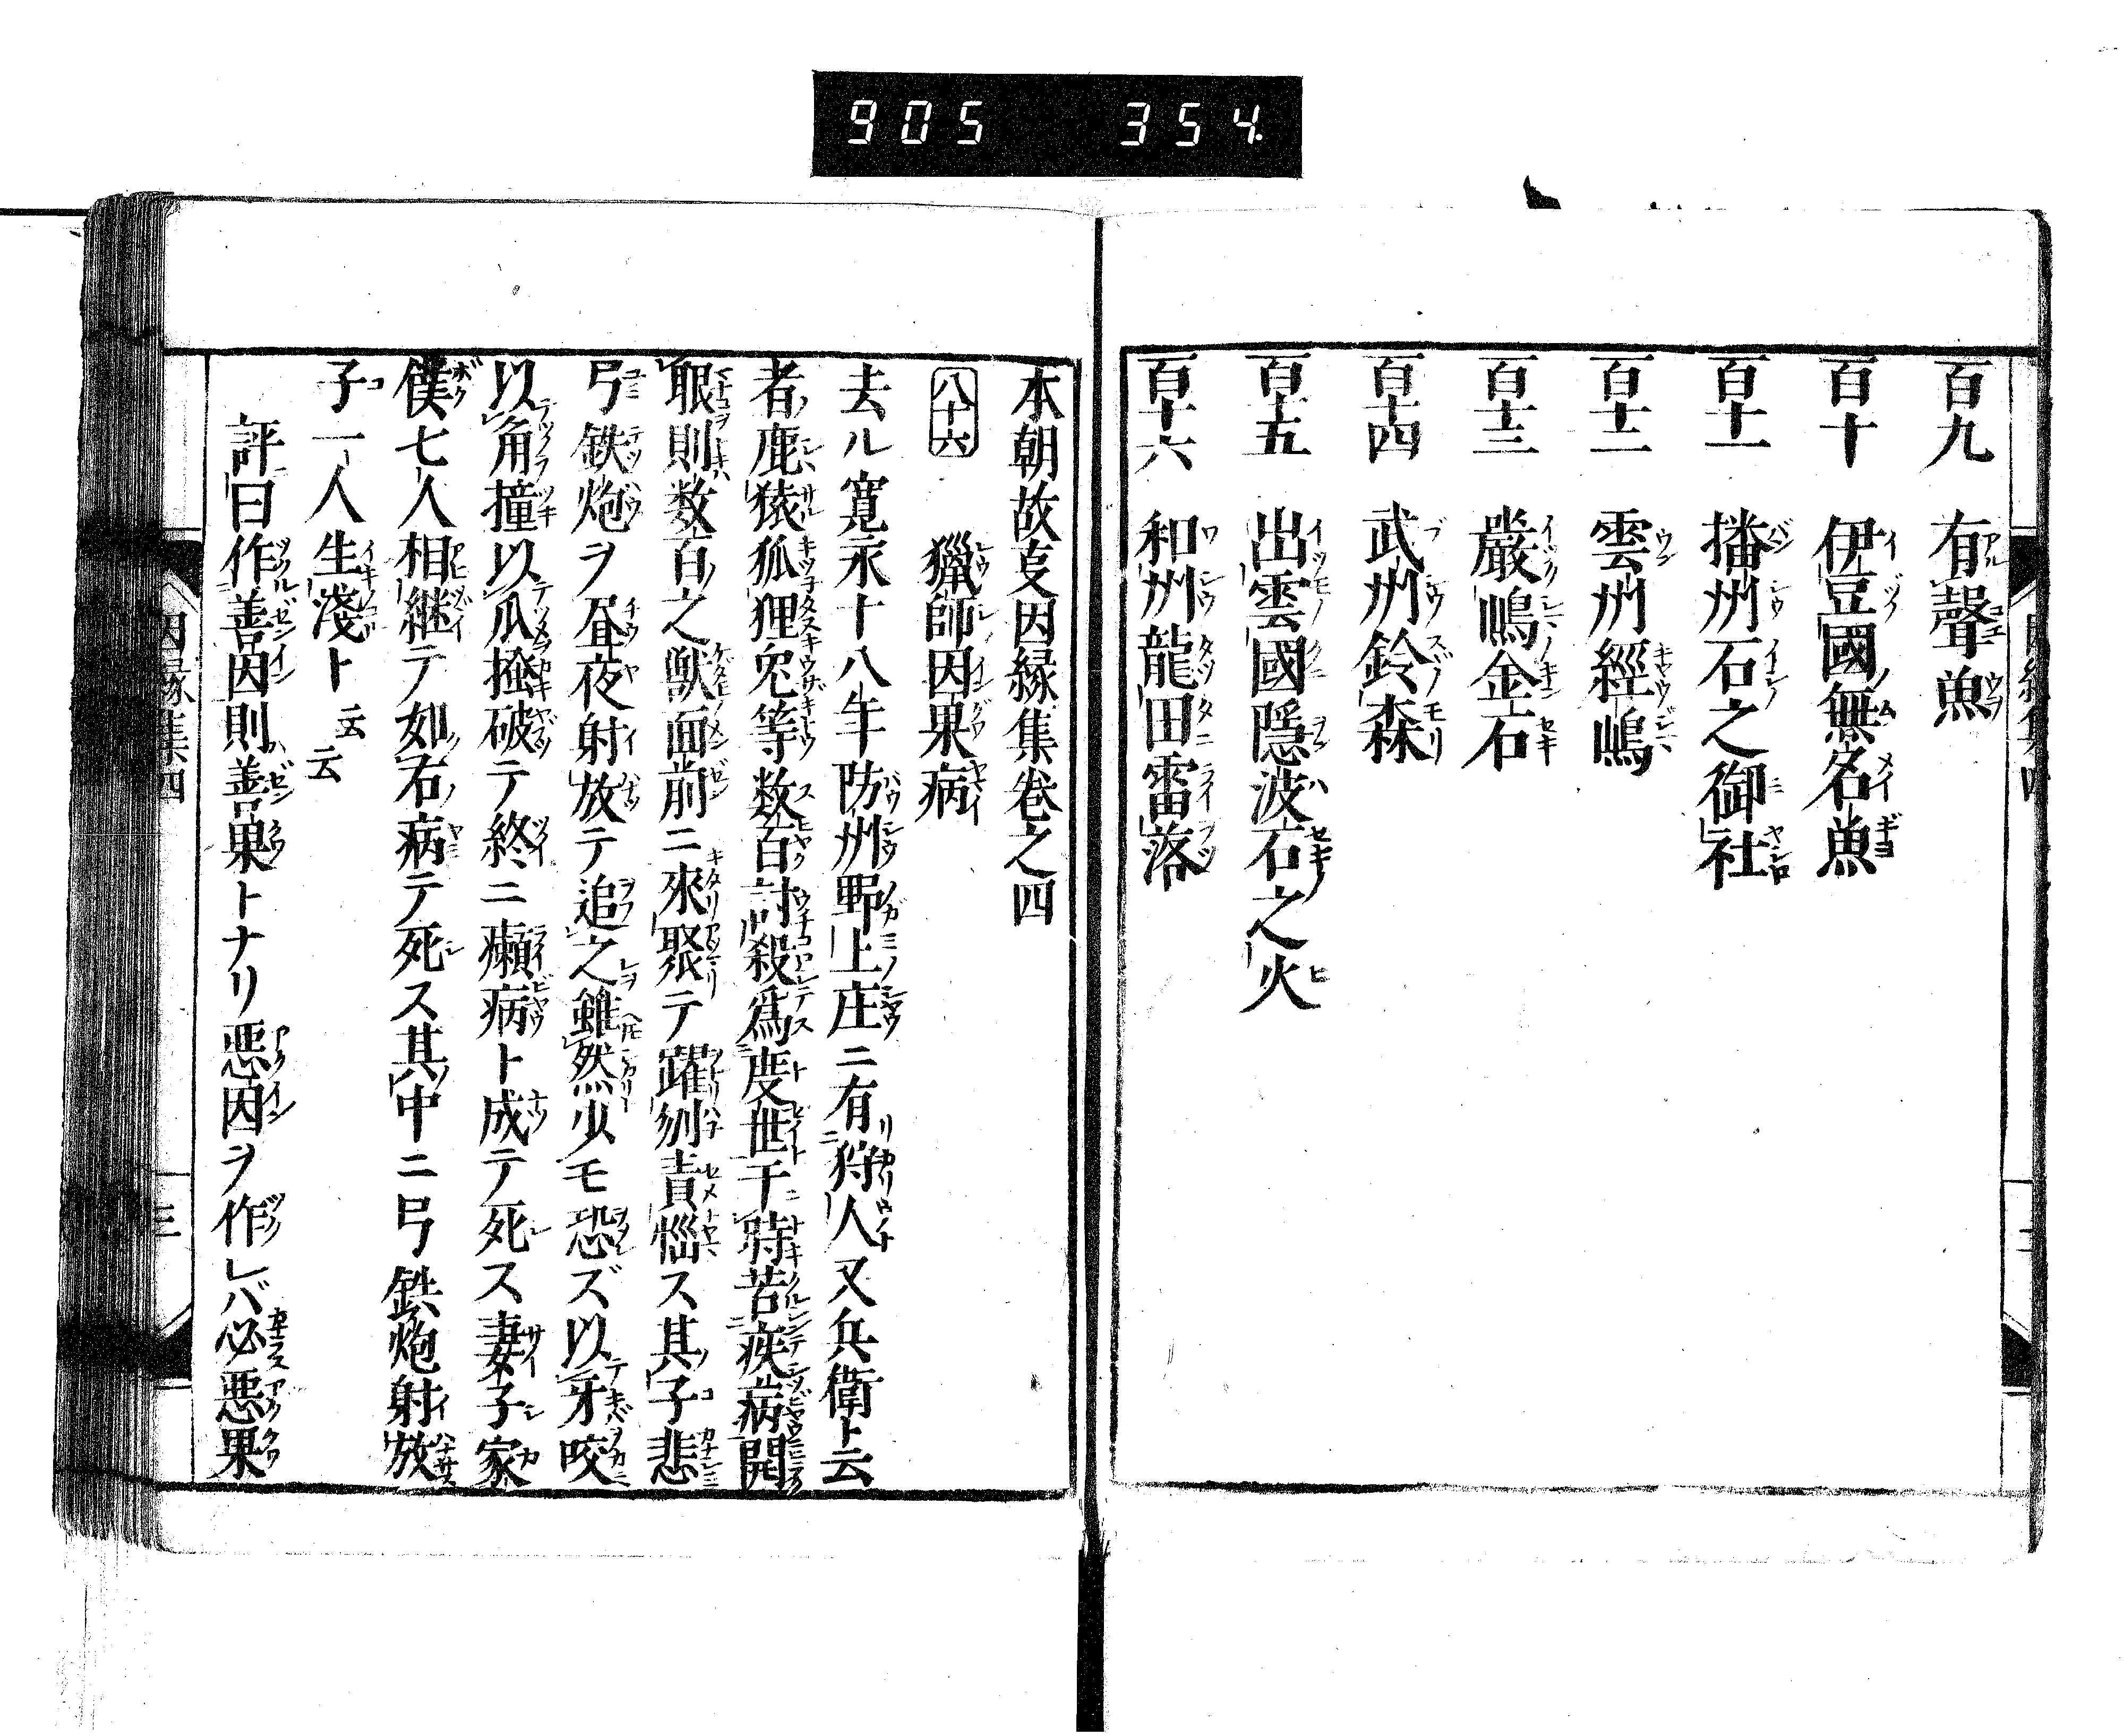 905 354
百九 有聲魚
百十 伊豆國無名魚
百十一 播州石之御社
百十二 雲州經嶋
百十三 嚴嶋金石
百十四 武州鈴森
百十五 出雲國隱波石之火
百十六 和州龍田雷落
本朝故叓因縁集巻之四
八十六 獵師因果病
去ル寛永十八年防州野上庄ニ有狩人又兵衛ト云
者鹿猿狐狸兔等数百討殺爲度世于時苦疾病開
眼則数百之獣面前ニ來聚テ躍刎責惱ス其子悲
弓鉄炮ヲ昼夜射放テ追之雖然少モ恐ズ以牙咬
以角撞以爪搔破テ終ニ癩病ト成テ死ス妻子家
僕七人相継テ如右病テ死ス其中ニ弓鉄炮射放
子一人生淺ト云云
評曰作善因則善果トナリ悪因ヲ作レバ必悪果
因縁集四 三